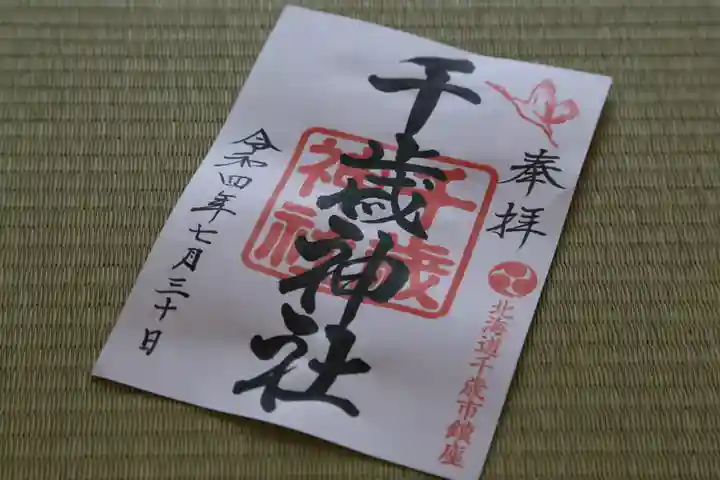 奉拝
北海道千歳市鎮座
千歳神社
千歳神社
令和四年七月三十日